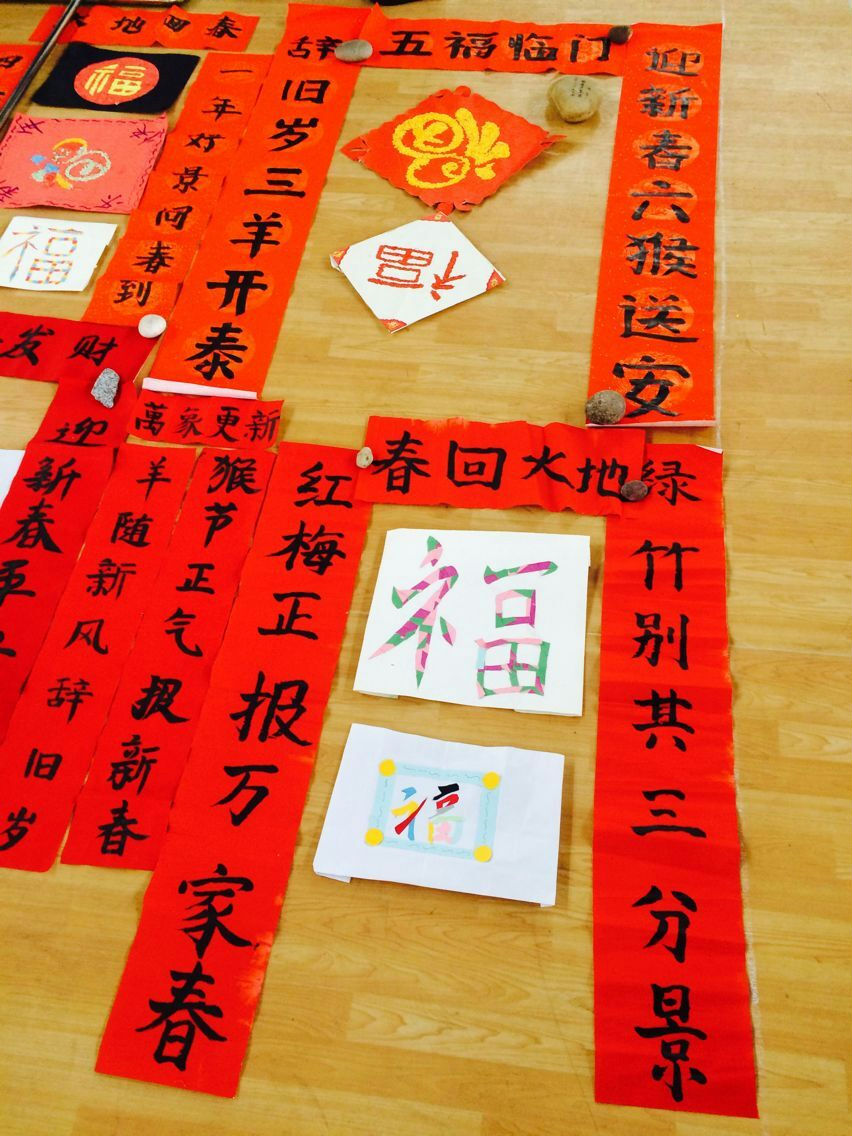 地回春
福
一年好景问春到
福
辞旧岁三羊开泰
五福临门
迎新春六猴送安
福
福
发财
迎新春
萬象更新
羊随新风辞旧岁
猴节正气报新春
红梅正报万家春
春回大地
绿竹别其三分景
福
福